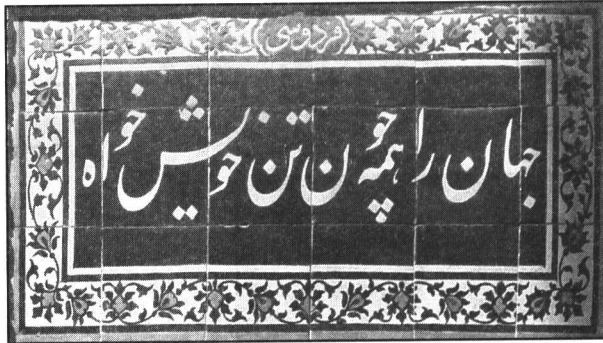 فردوسی
جهان را همه چون تن خویش خواه